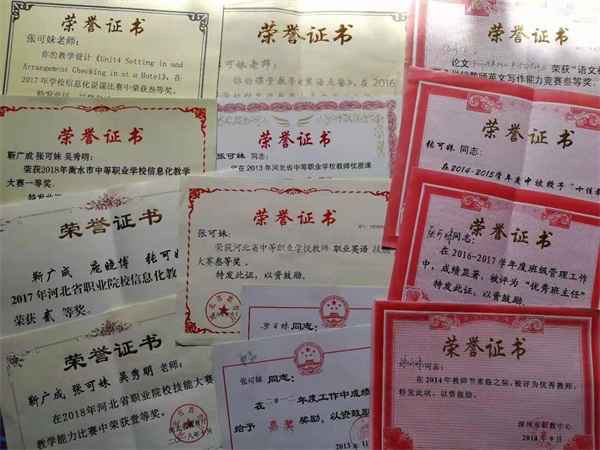 荣誉证书
张可妹老师：
你的教学设计《Unit4 Setting in and
Arrangement Checking in at a Hotel》，在
2017年学校信息化说课比赛中荣获叁等奖。
特发此证，以资
荣誉证书
张可妹老师：
你的课堂教学《英语点餐》在2016
荣誉证书
论文
荣获“语文
教师英文写作能力竞赛叁等奖。
荣誉证书
靳广成 张可妹 吴秀明：
荣获2018年衡水市中等职业学校信息化教学
大赛一等奖。
荣誉证书
张可妹 同志：
在2013年河北省中等职业学校教师优质课
荣誉证书
张可妹 同志：
在2014-2015学年度中被授予“十佳
荣誉证书
靳广成 庞晓博 张可
2017年河北省职业院校信息化教
荣获 贰 等奖。
荣誉证书
张可妹：
荣获河北省中等职业学校教师 职业英语 技能
大赛叁等奖。
特发此证，以资鼓励。
荣誉证书
张可妹 同志：
在2016-2017学年度班级管理工作
中，成绩显著，被评为“优秀班主任”
特发此证，以资鼓励。
荣誉证书
靳广成 张可妹 吴秀明 老师：
在2018年河北省职业院校技能大赛
教学能力比赛中荣获壹等奖。
二〇一八年
荣誉证书
张可妹 同志：
荣誉证书
张可妹 同志：
在二〇一二年度工作中成绩
给予 嘉奖 奖励，以资鼓励
2013年11
荣誉证书
张可妹 同志：
在2014年教师节来临之际，被评为优秀教师，
特发此状，以资鼓励。
深州市职教中心
2014年9月